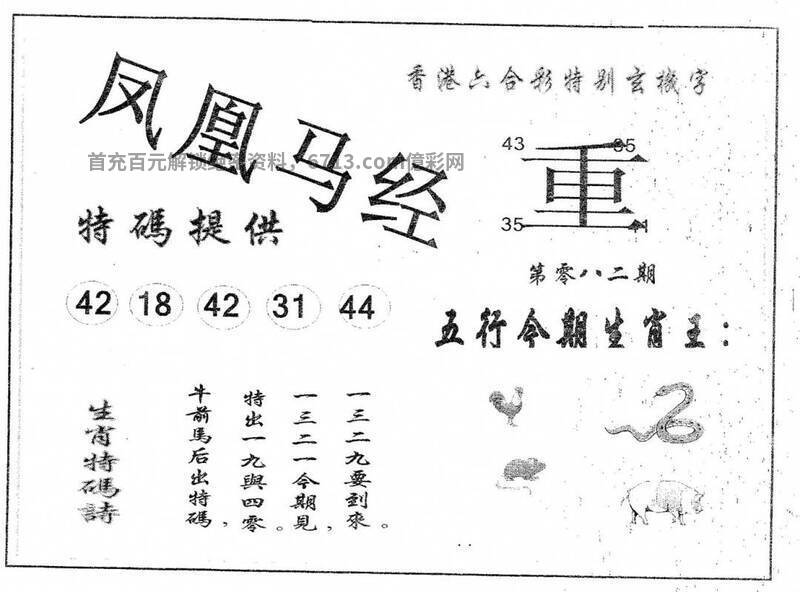 凤凰马经
香港六合彩特别玄機字
首充百元解锁 资料，6713.com億彩网
43
35
重
35
41
特碼提供
42 18 42 31 44
第零八二期
五行今期生肖王：
一三二九要到來。
一三二一今期見，
特出一九與四零。
牛前馬后出特碼，
生肖特碼詩